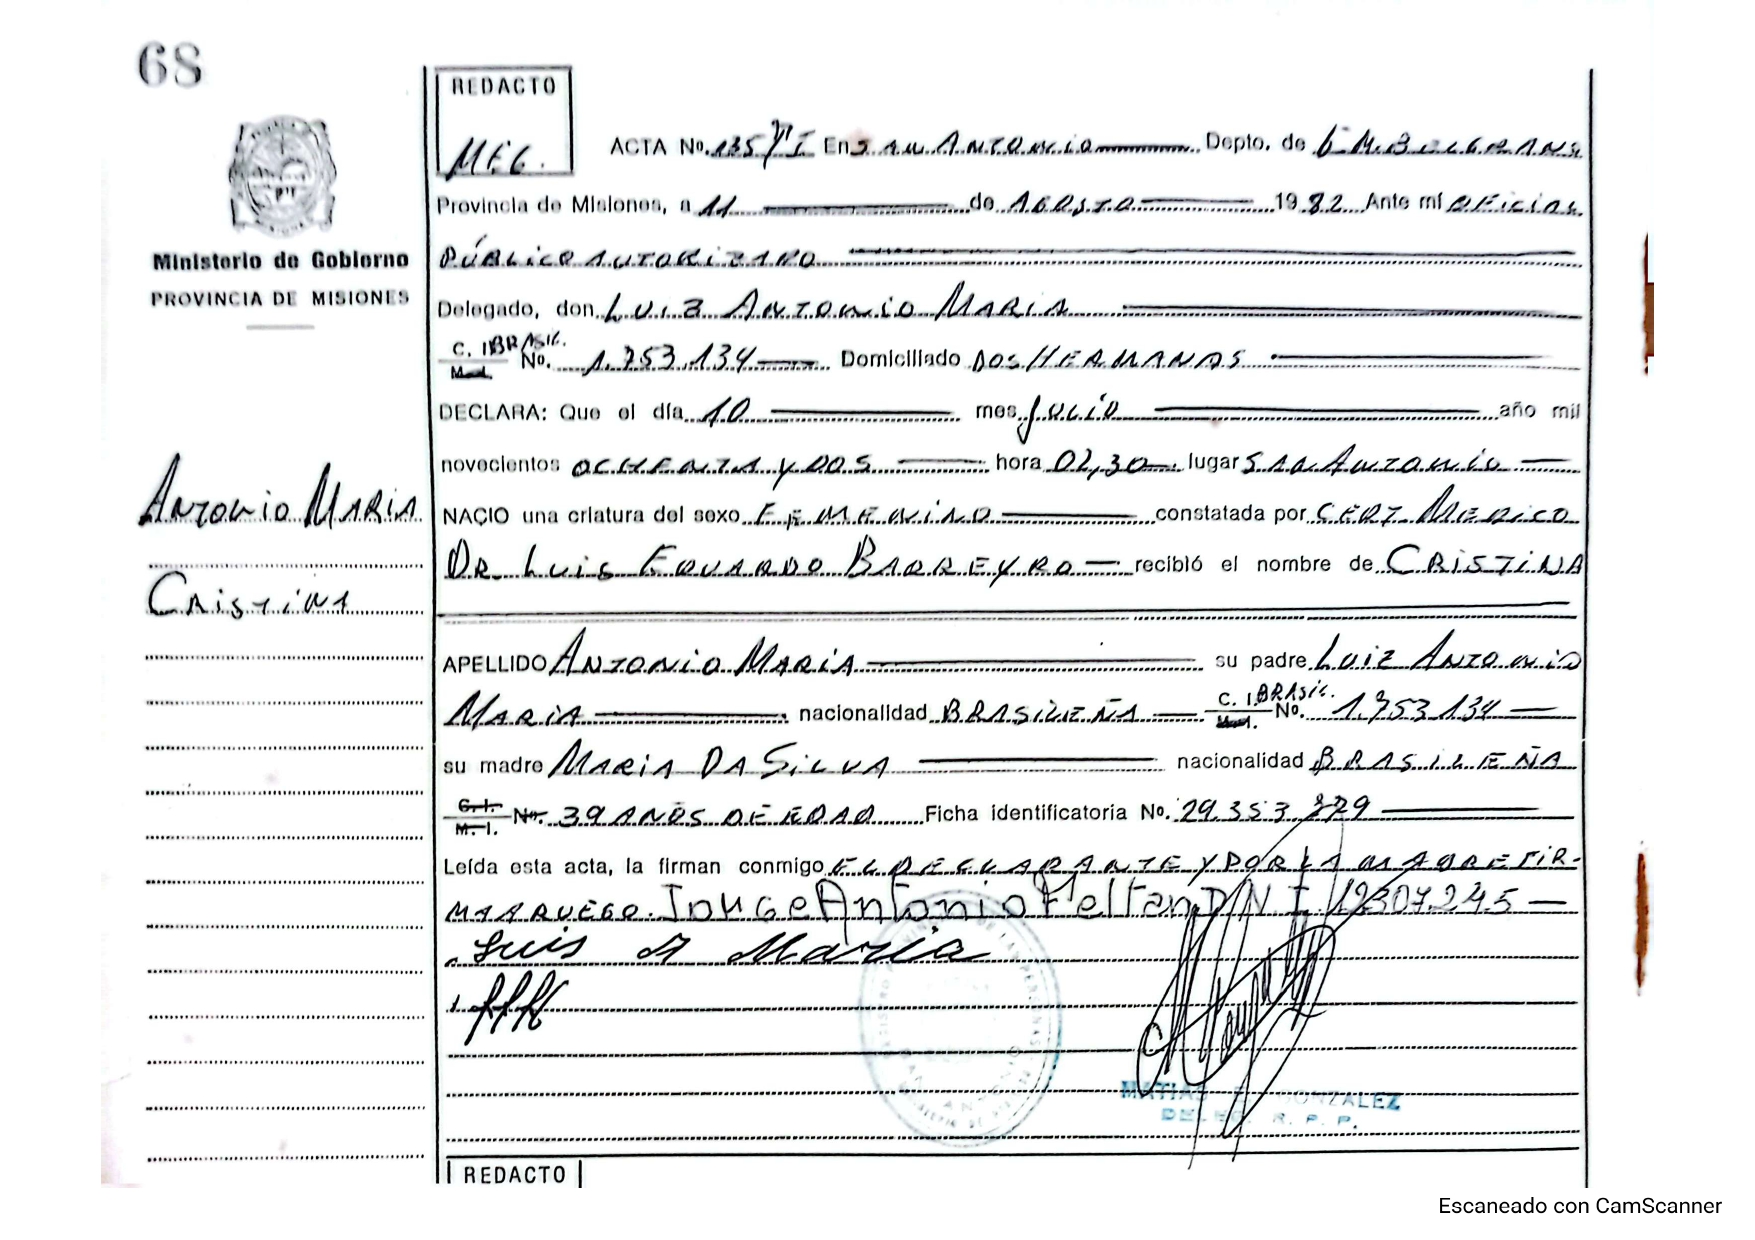 68
REDACTO
MEG.
ACTA No. 135 TI En San Antonio Depto. de G M. BELGRANO
Provincia de Misiones, a 11 de AGOSTO 1982 Ante mí OFICIAL
PÚBLICO AUTORIZADO
Ministerio de Gobierno
PROVINCIA DE MISIONES
Delegado, don LUIZ ANTONIO MARIA
C. I. BRASIL.
M.I. No. 1.753.134 Domiciliado DOS HERMANAS
DECLARA: Que el día 10 mes Julio año mil
novecientos OCHENTA Y DOS hora 02,30 lugar SAN ANTONIO
ANTONIO MARIA
CRISTINA
NACIO una criatura del sexo FEMENINO constatada por CERT MEDICO
DR. LUIS EDUARDO BARREYRO recibió el nombre de CRISTINA
APELLIDO ANTONIO MARIA su padre LUIZ ANTONIO
MARIA nacionalidad BRASILEÑA C. I. BRASIL. M.I. No. 1.753.134
su madre MARIA DA SILVA nacionalidad BRASILEÑA
C.I. M.I. No. 39 AÑOS DE EDAD Ficha identificatoria No. 29.353.379
Leída esta acta, la firman conmigo EL DECLARANTE Y POR LA MADRE FIR-
MA A RUEGO. Jorge Antonio Feltan DNI 12307.245
Luis A Maria
MATIAS GONZALEZ
DELEG. R. P. P.
REDACTO
Escaneado con CamScanner